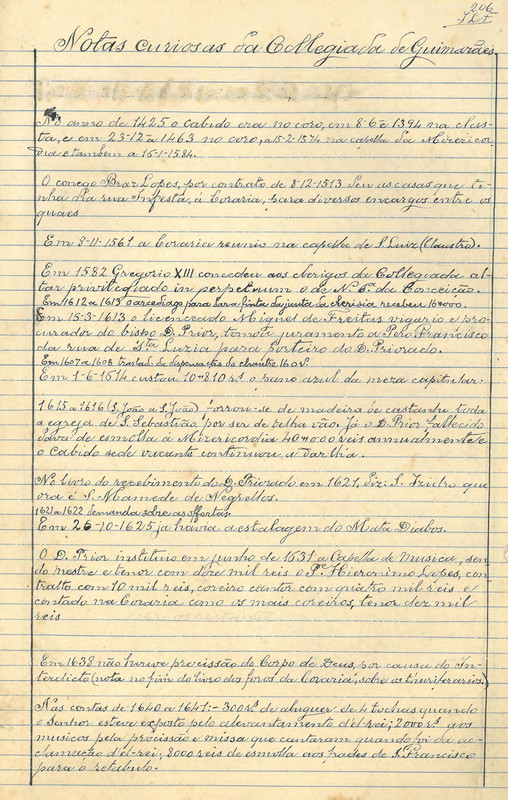 206
Notas curiosas da Collegiada de Guimarães
No anno de 1425 o cabido era no coro, em 8-6º-1394 na claus-
tra, e em 23-12-a 1463 no coro, a 15-2-1574 na capella da Misericor-
dia e tambem a 15-1-1584.
O conego Braz Lopes, por contrato de 8-12-1513 deu as casas que ti-
nha na rua Infesta, á Coraria, para diversos encargos entre os
quaes
Em 8-11-1561 a Coraria reunio na capella de S. Luiz (Claustro).
Em 1582 Gregorio XIII concedeu aos clerigos da Collegiada al-
tar privilegiado in perpetuum o de N. Sª. da Conceição.
Em 1612 a 1613 o arcediago para a finta da junta da cleresia recebeu 16#000.
Em 15-3-1613 o licenceado Miguel de Freitas vigario e pro-
curador do bispo D. Prior, tomou juramento a Pero Francisco
da rua de Sta Luzia para porteiro do D. Priorado.
Em 1607 a 1608 traslado da dispensação do chantre 160 rs.
Em 1-6-1614 custou 10#810 rs o pano azul da meza capitular.
1615 a 1616 (S. João a S. João) forrou-se de madeira de castanho toda
a egreja de S. Sebastião, por ser de telha vã. Já o D. Prior fallecido
dava de esmolla á Misericordia 40#000 reis annualmente e
o Cabido sede vacante continuou a dar-lha.
No livro do recebimento do D. Priorado em 1621, diz: S. Izidro que
ora é S. Mamede de Negrellos.
1621 a 1622 demanda sobre as offertas.
Em 26-10-1625 já havia a estalagem do Mata Diabos.
O D. Prior instituio em junho de 1631 a Capella de Musica, sen-
do mestre e tenor com doze mil reis o Pe. Hieronimo Lopes, con-
tralto com 10 mil reis, coreiro cantor com quatro mil reis e
contado na Coraria como os mais coreiros, tenor dez mil
reis
Em 1638 não houve procissão do Corpo de Deus, por causa do In-
terdicto (nota no fim do livro dos foros da Coraria, sobre os thuriferarios.)
Nas contas de 1640 a 1641:- 300 rs. de aluguer de 4 tochas quando
o Senhor esteve exposto pelo alevantamento d'el-rei; 2000 rs. aos
musicos pela procissão e missa que cantaram quando foi da ac-
clamação d'el-rei, 8000 reis de esmolla aos frades de S. Francisco
para o retabulo.